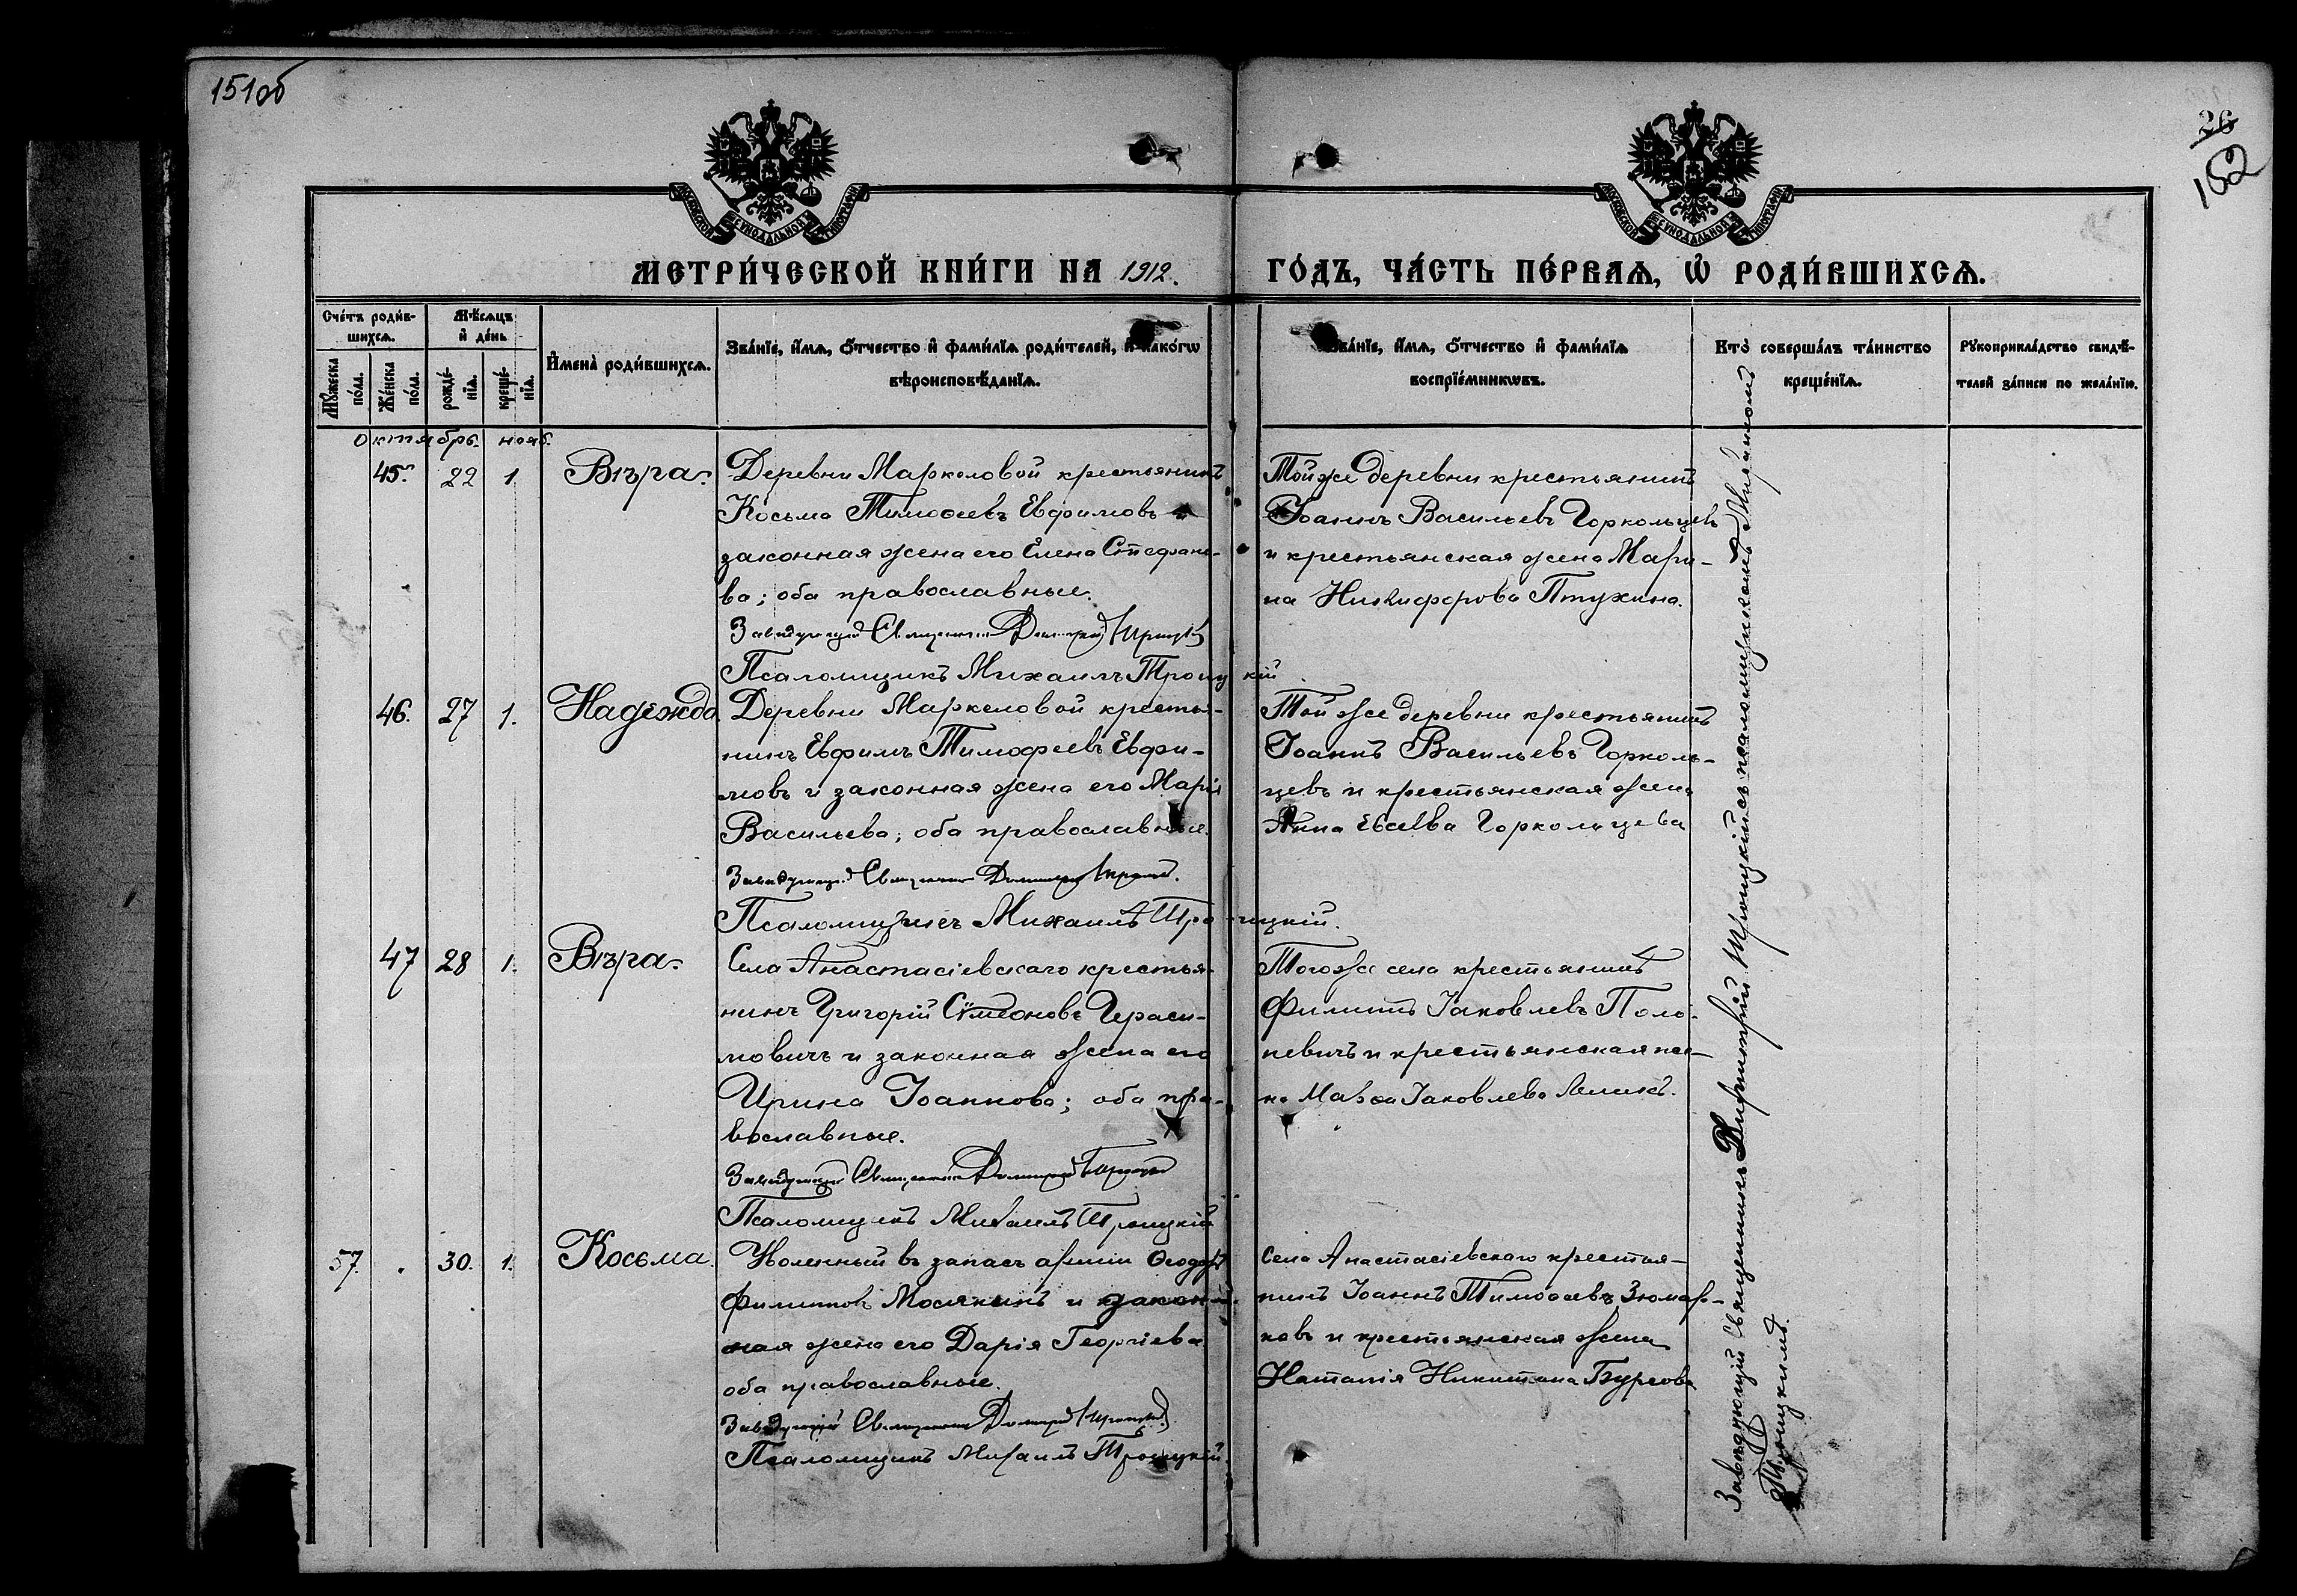 151об
26
152
МОСКОВСКОЙ СѴНОДАЛЬНОЙ ТИПОГРАФІИ
МОСКОВСКОЙ СѴНОДАЛЬНОЙ ТИПОГРАФІИ
МЕТРИ́ЧЕСКОЙ КНИ́ГИ НА 1912. ГО́ДЪ, ЧА́СТЬ ПЕ́РВАѦ, Ѽ РОДИ́ВШИХСѦ.
Сче́тъ роди́в-
шихсѧ.
Мꙋ́жеска по́ла.
Же́нска по́ла.
Мѣ́сѧцъ и҆ де́нь
рожде́-
нїѧ.
креще́-
нїѧ.
И҆мена̀ роди́вшихсѧ.
Зва́нїе, и҆́мѧ, ѻ҆́тчество и҆ фамѝлїѧ роди́телей, и҆ како́гѡ
вѣроисповѣ́данїѧ.
Зва́нїе, и҆́мѧ, ѻ҆́тчество и҆ фамѝлїѧ
воспрїе́мникѡвъ.
Кто̀ соверша́лъ та́инство
креще́нїѧ.
Рꙋкоприкла́дство свидѣ́-
телей за́писи по жела́нїю.
Октябрь. нояб.
45. 22 1 Вѣра.
Деревни Маркеловой крестьянинъ
Косьма Тимоѳеевъ Евфимовъ и
законная жена его Елена Стефано-
ва; оба православные.
Завѣдующій Священникъ Димитрій Троицкій
Псаломщикъ Михаилъ Троицкій
Той же деревни крестьянинъ
Іоаннъ Васильевъ Горкольцевъ
и крестьянская жена Мари-
на Никифорова Птухина.
46. 27 1. Надежда
Деревни Маркеловой крестья-
нинъ Евфимъ Тимофеевъ Евфи-
мовъ и законная жена его Марія
Васильева; оба православные.
Завѣдующій Священникъ Димитрій Троицкій.
Псаломщикъ Михаилъ Троицкій.
Той же деревни крестьянинъ
Іоаннъ Васильевъ Горколь-
цевъ и крестьянская жена
Анна Евсеева Горкольцева
47 28 1. Вѣра.
Села Анастасіевскаго крестья-
нинъ Григорій Сѵмеоновъ Гераси-
мовичъ и законная жена его
Ирина Іоаннова; оба пра-
вославные.
Завѣдующій Священникъ Димитрій Троицкій
Псаломщикъ Михаилъ Троицкій
Того же села крестьянинъ
Филиппъ Іаковлевъ Поло-
невичъ и крестьянская же-
на Іаковлева
57. 30. 1. Косьма.
Уволенный въ запасъ арміи Ѳеодоръ
Филипповъ Мосякинъ и закон-
ная жена его Дарія Георгіева
оба православные.
Завѣдующій Священникъ Димитрій Троицкій
Псаломщикъ Михаилъ Троицкій.
Села Анастасіевскаго крестья-
нинъ Іоаннъ Тимоѳеевъ
и крестьянская жена
Наталія Никитина
Завѣдующій Священникъ Димитрій Троицкій съ псаломщикомъ Михаиломъ
Троицкимъ.